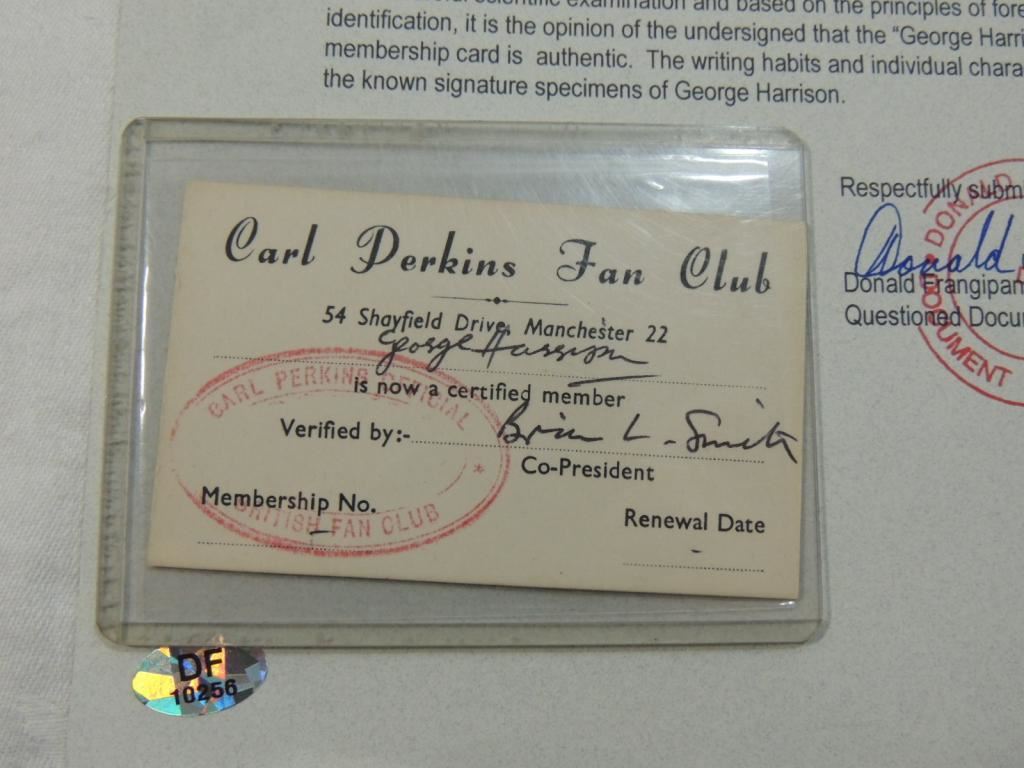 scientific examination and based on the principles of fore
identification, it is the opinion of the undersigned that the "George Harri
membership card is authentic. The writing habits and individual chara
the known signature specimens of George Harrison.
Respectfully subm
Donald
Donald Frangipan
Questioned Docu
DONALD
DOCUMENT
Carl Perkins Fan Club
54 Shayfield Drive, Manchester 22
George Harrison
is now a certified member
Verified by:- Brian L. Smith
Co-President
Membership No.
Renewal Date
CARL PERKINS OFFICIAL
* BRITISH FAN CLUB
DF
10256